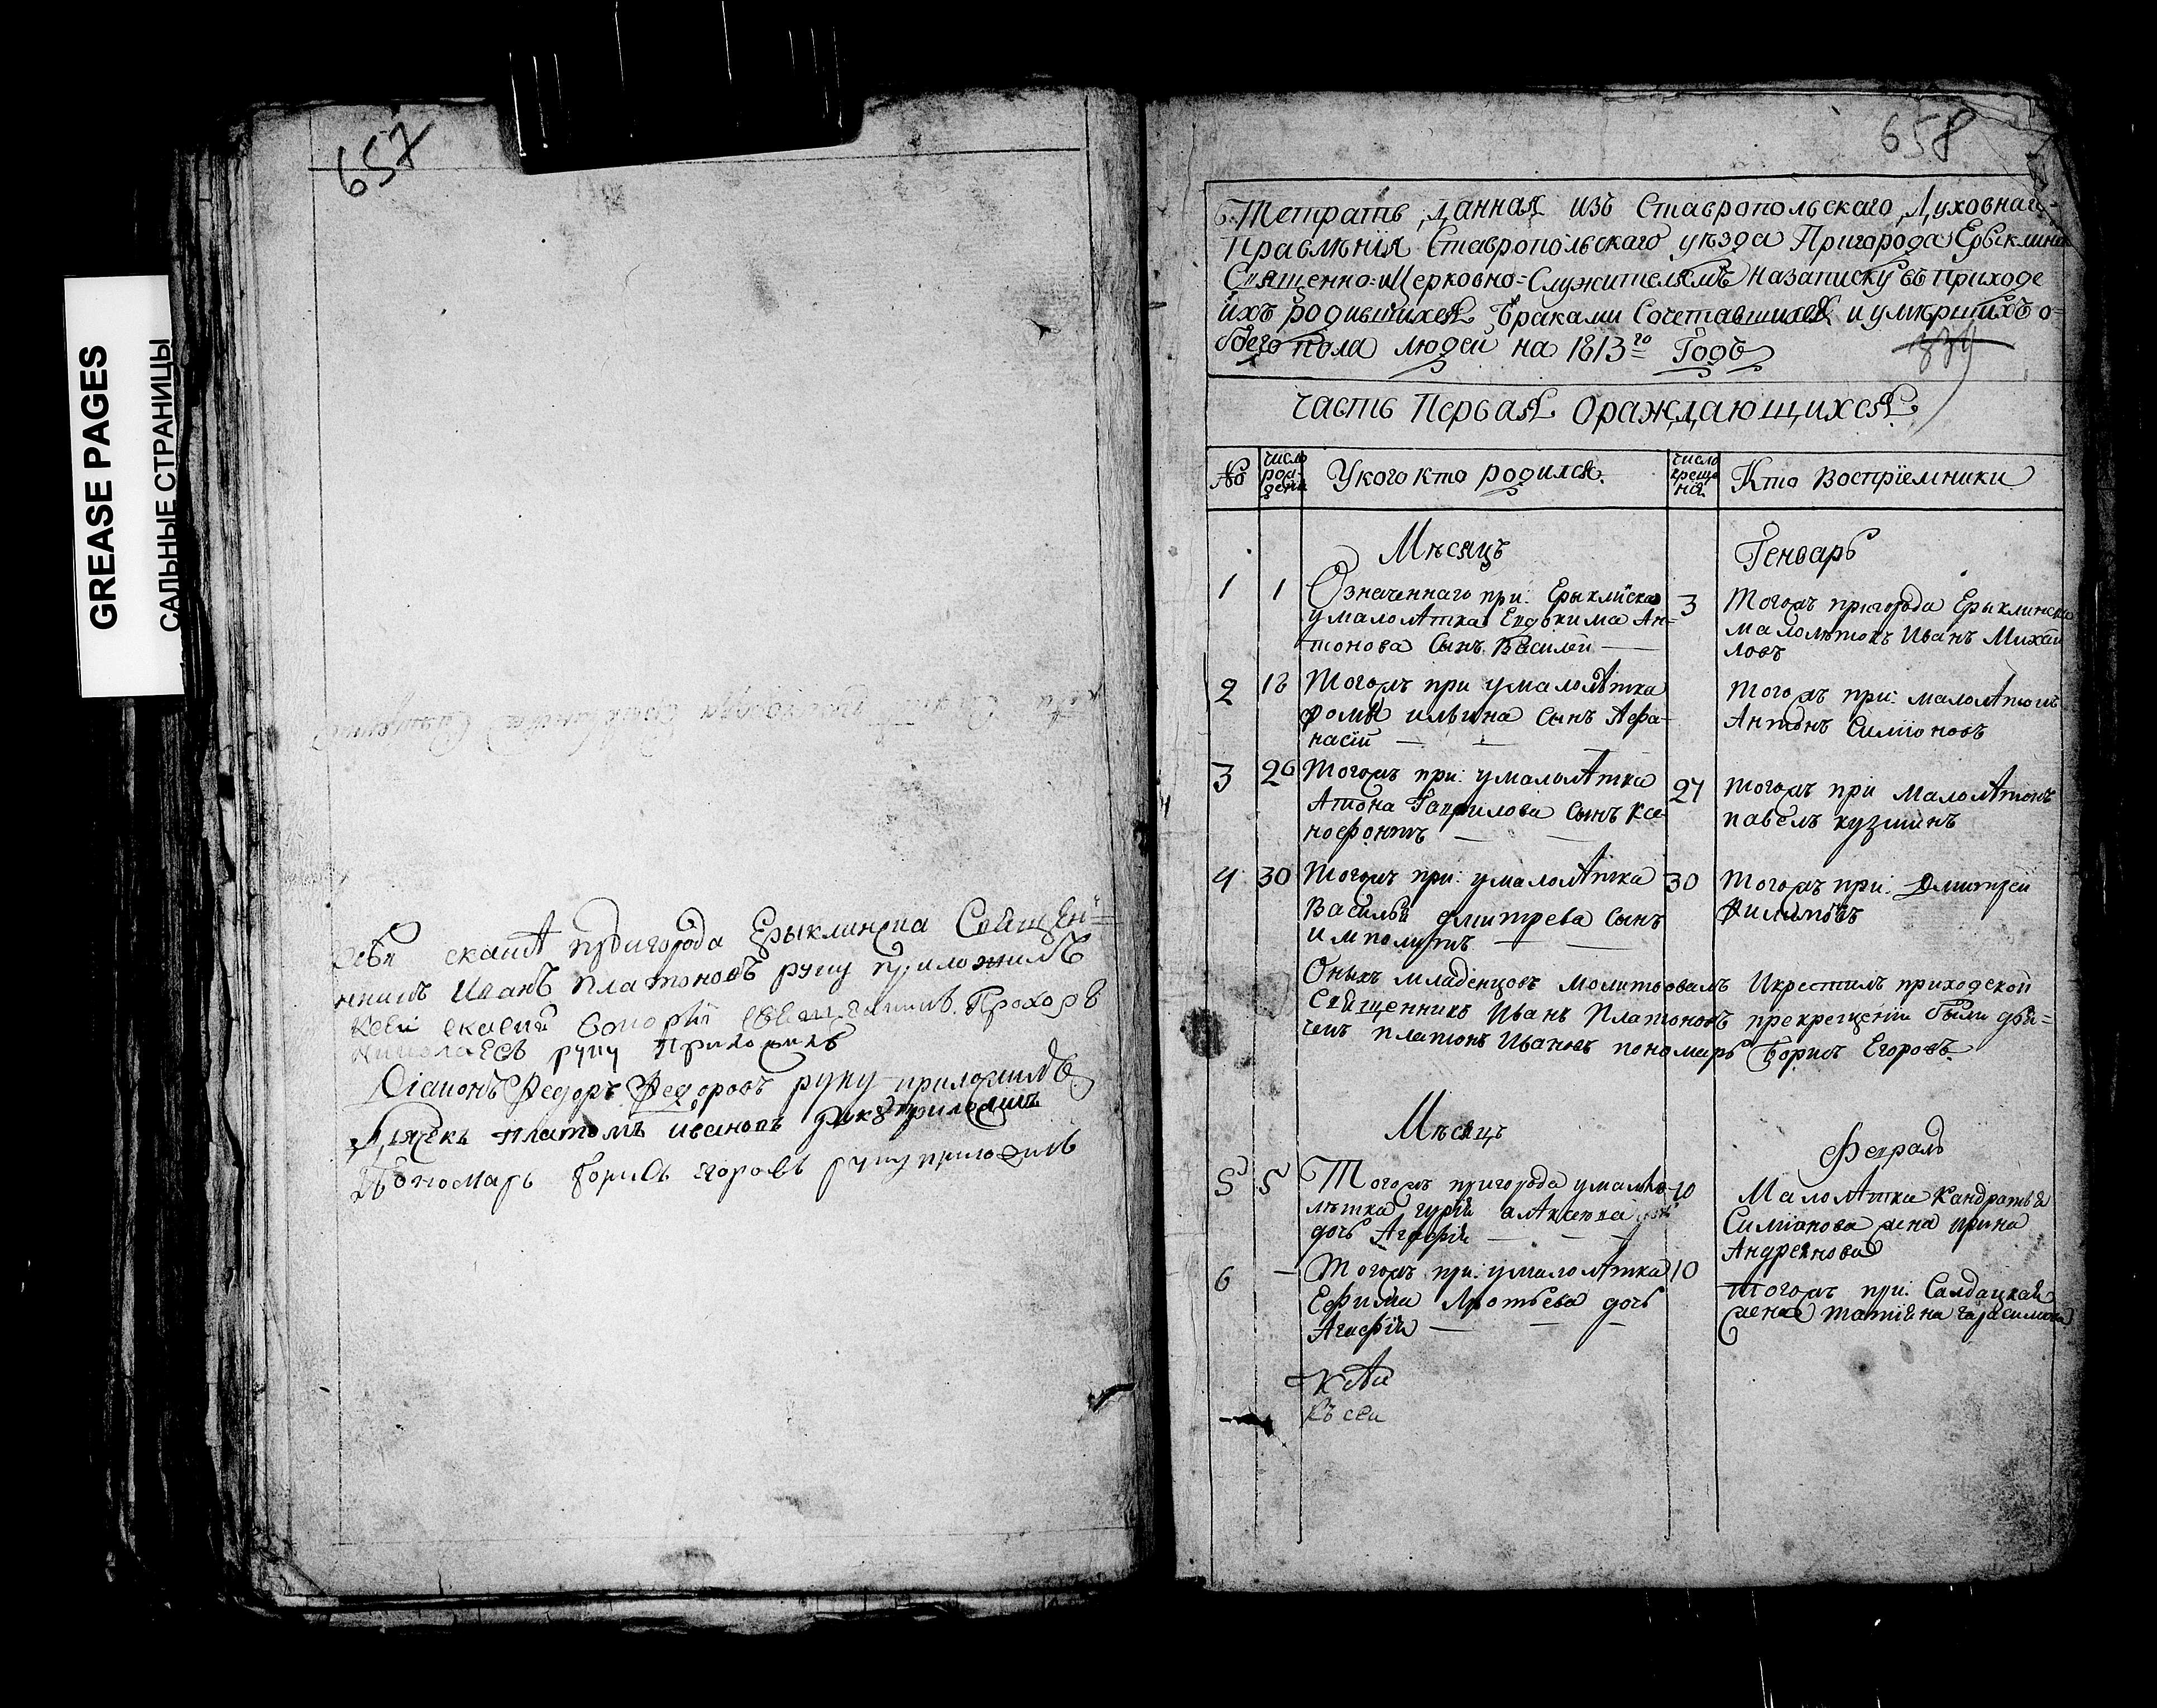 GREASE PAGES
САЛЬНЫЕ СТРАНИЦЫ
657
пригорода Ерыклинска Священ=
Иванъ Платоновъ руку приложилъ
Прохоръ
руку приложилъ
Діаконъ Федоръ Федоровъ руку приложилъ
Дячекъ Платонъ Ивановъ руку приложилъ
Пономарь Борисъ Егоровъ руку приложилъ
658
Тетрать данная изъ Ставропольскаго Духовнаго
Правлѣнія Ставропольскаго уѣзда Пригорода Ерыклинска
Священно=Церковно=Служителямъ Назаписку въ приходе
ихъ родившихся Браками Сочетавшихся и умѣршихъ о=
боего пола людей на 1813го Годъ
339
Часть Первая Ораждающихся
№
число рождения
Укого кто родился
число крещения
Кто Воспріемники
Мѣсяцъ
Генварь
1 1 Означеннаго при: Ерыклиска
умалолѣтка Евдокима Ан=
тонова Сынъ Василей
3 Тогожъ пригорода Ерыклинска
малолѣтокъ Иванъ Михаи
ловъ
2 18 Тогожъ при умалолѣтка
Фомы ильина Сынъ Афа=
насій
Тогожъ при: малолѣтокъ
Антонъ Симіоновъ
3 26 Тогожъ при: умалолѣтка
Антона Гаврилова Сынъ Ксе
нофонтъ
27 Тогожъ при малолѣтокъ
павелъ кузминъ
4 30 Тогожъ при: умалолѣтка
Василья дмитрева Сынъ
имполитъ
30 Тогожъ при: Дмитрей
Филиповъ
Оныхъ младенцовъ молитвовалъ Икрестилъ приходской
Священникъ Иванъ Платоновъ прекрещеніи были дья=
чекъ платонъ Ивановъ пономарь Борисъ Егоровъ
Мѣсяцъ
Февраль
5 5 Тогожъ пригорода умало
лѣтка гурія алѣксѣева
дочь Агафія
10 Малолѣтка Кандратья
Симіонова жена ирина
Андреянова
6 Тогожъ при: умалолѣтка
Ефима дочь
Агафія
10 Тогожъ при: Салдацкая
жена татіяна гарасимова
Къ сеи